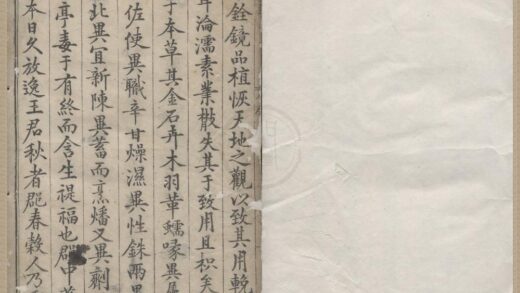 銓鏡品植恢天地之觀以致其用輓
淪濡素業散失其于致用且枳矣
于本草其金石卉木羽革蠕喙異
佐使異職辛甘燥濕異性銖兩異
北異宜新陳異蓄而烹燔又異劑
亭毒于有終而含生禔福也郡中
本日久放逸王君秋者郡春穀人乃